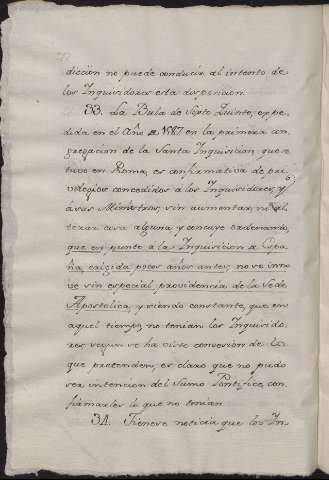 diccion no puede conducir al intento de
los Inquisidores esta disposicion.
33. La Bula de Sixto Quinto, expe
dida en el Año de 1587 en la primera con
gregacion de la Santa Inquisicion, que se
tuvo en Roma, es confirmativa de pri
vilegios concedidos a los Inquisidores, y
á sus Ministros, sin aumentar, ni al
terar cosa alguna y concluye ordenando,
que en punto á la Inquisicion de Espa
ña erigida pocos años antes, no se inno
ve sin especial providencia de la Sede
Apostolica, y siendo constante, que en
aquel tiempo, no tenian los Inquisido
res, segun se ha visto conversion de lo
que pretenden, es claro que no pudo
ser intencion del Sumo Pontifice, con
firmarles lo que no tenian.
34. Tienese noticia que los In-